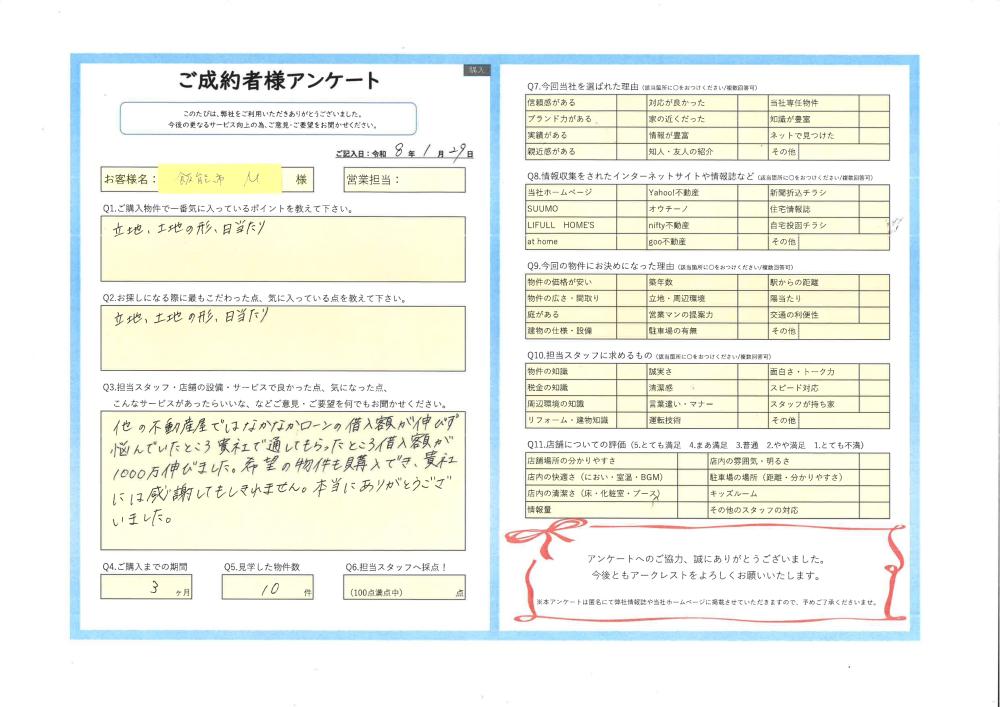 購入
ご成約者様アンケート
このたびは、弊社をご利用いただきありがとうございました。
今後の更なるサービス向上の為、ご意見・ご要望をお聞かせください。
ご記入日：令和 8 年 1 月 29 日
お客様名： 飯能市 M 様
営業担当：
Q1.ご購入物件で一番気に入っているポイントを教えて下さい。
立地、土地の形、日当たり
Q2.お探しになる際に最もこだわった点、気に入っている点を教えて下さい。
立地、土地の形、日当たり
Q3.担当スタッフ・店舗の設備・サービスで良かった点、気になった点、
こんなサービスがあったらいいな、などご意見・ご要望を何でもお聞かせください。
他の不動産屋ではなかなかローンの借入額が伸びず
悩んでいたところ貴社で通してもらったところ借入額が
1000万伸びました。希望の物件も購入でき、貴社
には感謝してもしきれません。本当にありがとうござ
いました。
Q4.ご購入までの期間
3 ヶ月
Q5.見学した物件数
10 件
Q6.担当スタッフへ採点！
(100点満点中) 点
Q7.今回当社を選ばれた理由（該当箇所に○をおつけください/複数回答可）
信頼感がある 対応が良かった 当社専任物件
ブランド力がある 家の近くだった 知識が豊富
実績がある 情報が豊富 ネットで見つけた
親近感がある 知人・友人の紹介 その他
Q8.情報収集をされたインターネットサイトや情報誌など（該当箇所に○をおつけください/複数回答可）
当社ホームページ Yahoo!不動産 新聞折込チラシ
SUUMO オウチーノ 住宅情報誌
LIFULL HOME'S nifty不動産 自宅投函チラシ
at home goo不動産 その他
Q9.今回の物件にお決めになった理由（該当箇所に○をおつけください/複数回答可）
物件の価格が安い 築年数 駅からの距離
物件の広さ・間取り 立地・周辺環境 陽当たり
庭がある 営業マンの提案力 交通の利便性
建物の仕様・設備 駐車場の有無 その他
Q10.担当スタッフに求めるもの（該当箇所に○をおつけください/複数回答可）
物件の知識 誠実さ 面白さ・トーク力
税金の知識 清潔感 スピード対応
周辺環境の知識 言葉遣い・マナー スタッフが持ち家
リフォーム・建物知識 運転技術 その他
Q11.店舗についての評価（5.とても満足 4.まあ満足 3.普通 2.やや満足 1.とても不満）
店舗場所の分かりやすさ 店内の雰囲気・明るさ
店内の快適さ（におい・室温・BGM） 駐車場の場所（距離・分かりやすさ）
店内の清潔さ（床・化粧室・ブース） キッズルーム
情報量 その他のスタッフの対応
アンケートへのご協力、誠にありがとうございました。
今後ともアークレストをよろしくお願いいたします。
※本アンケートは匿名にて弊社情報誌や当社ホームページに掲載させていただきますので、予めご了承くださいませ。